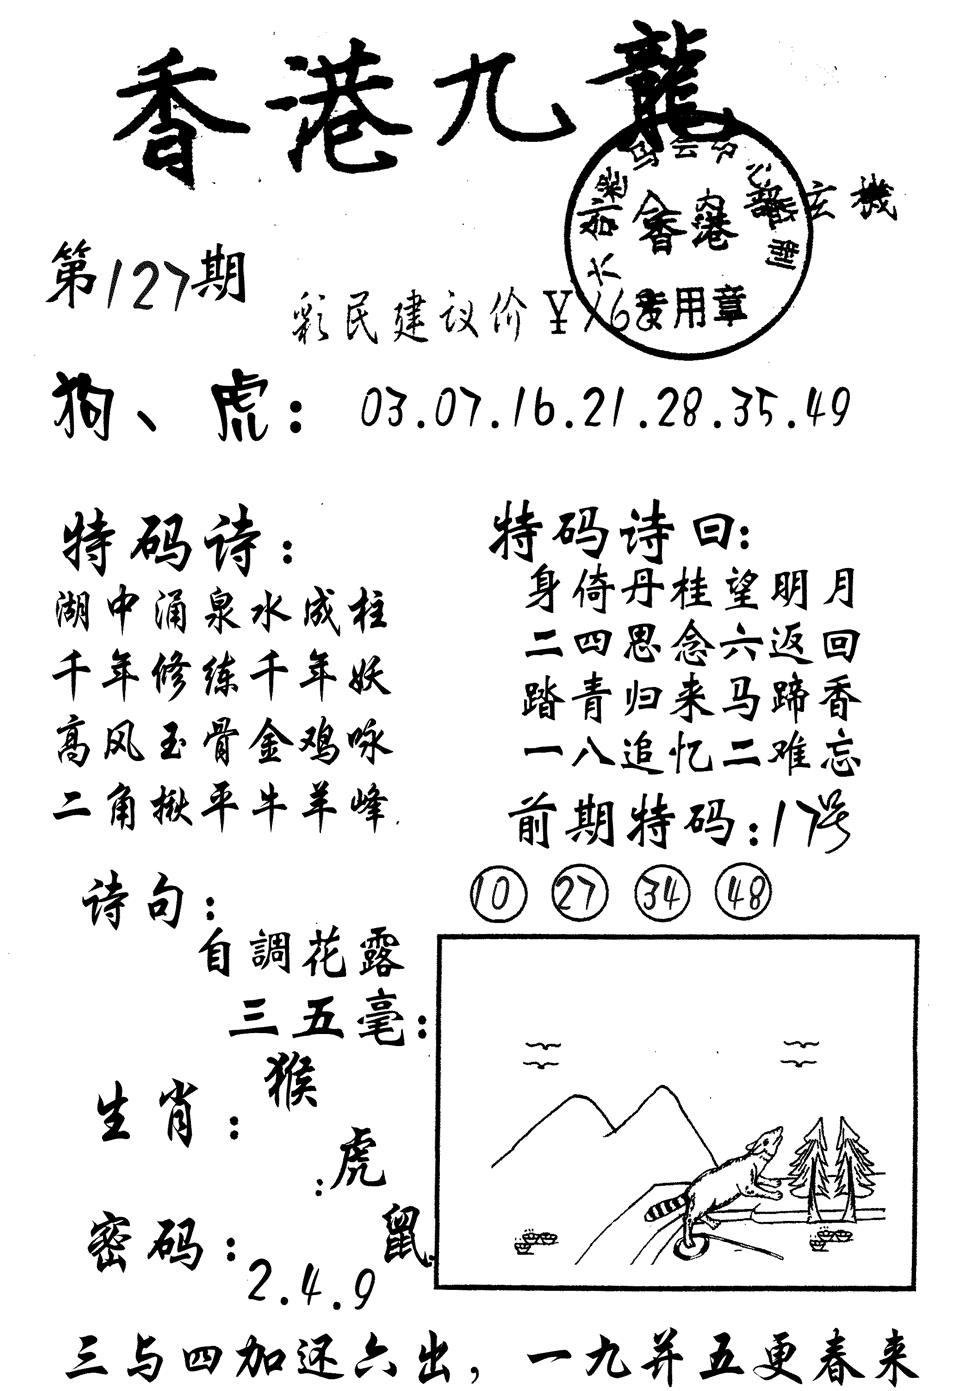 香港九龍
玄機
香港
专用章
第127期
彩民建议价￥168
狗、虎：03.07.16.21.28.35.49
特码诗：
湖中涌泉水成柱
千年修练千年妖
高风玉骨金鸡咏
二角揪平牛羊峰
特码诗曰：
身倚丹桂望明月
二四思念六返回
踏青归来马蹄香
一八追忆二难忘
前期特码：17号
10 27 34 48
诗句：
自調花露
三五毫：
生肖：猴
：虎
鼠
密码：2.4.9
三与四加还六出，一九并五更春来